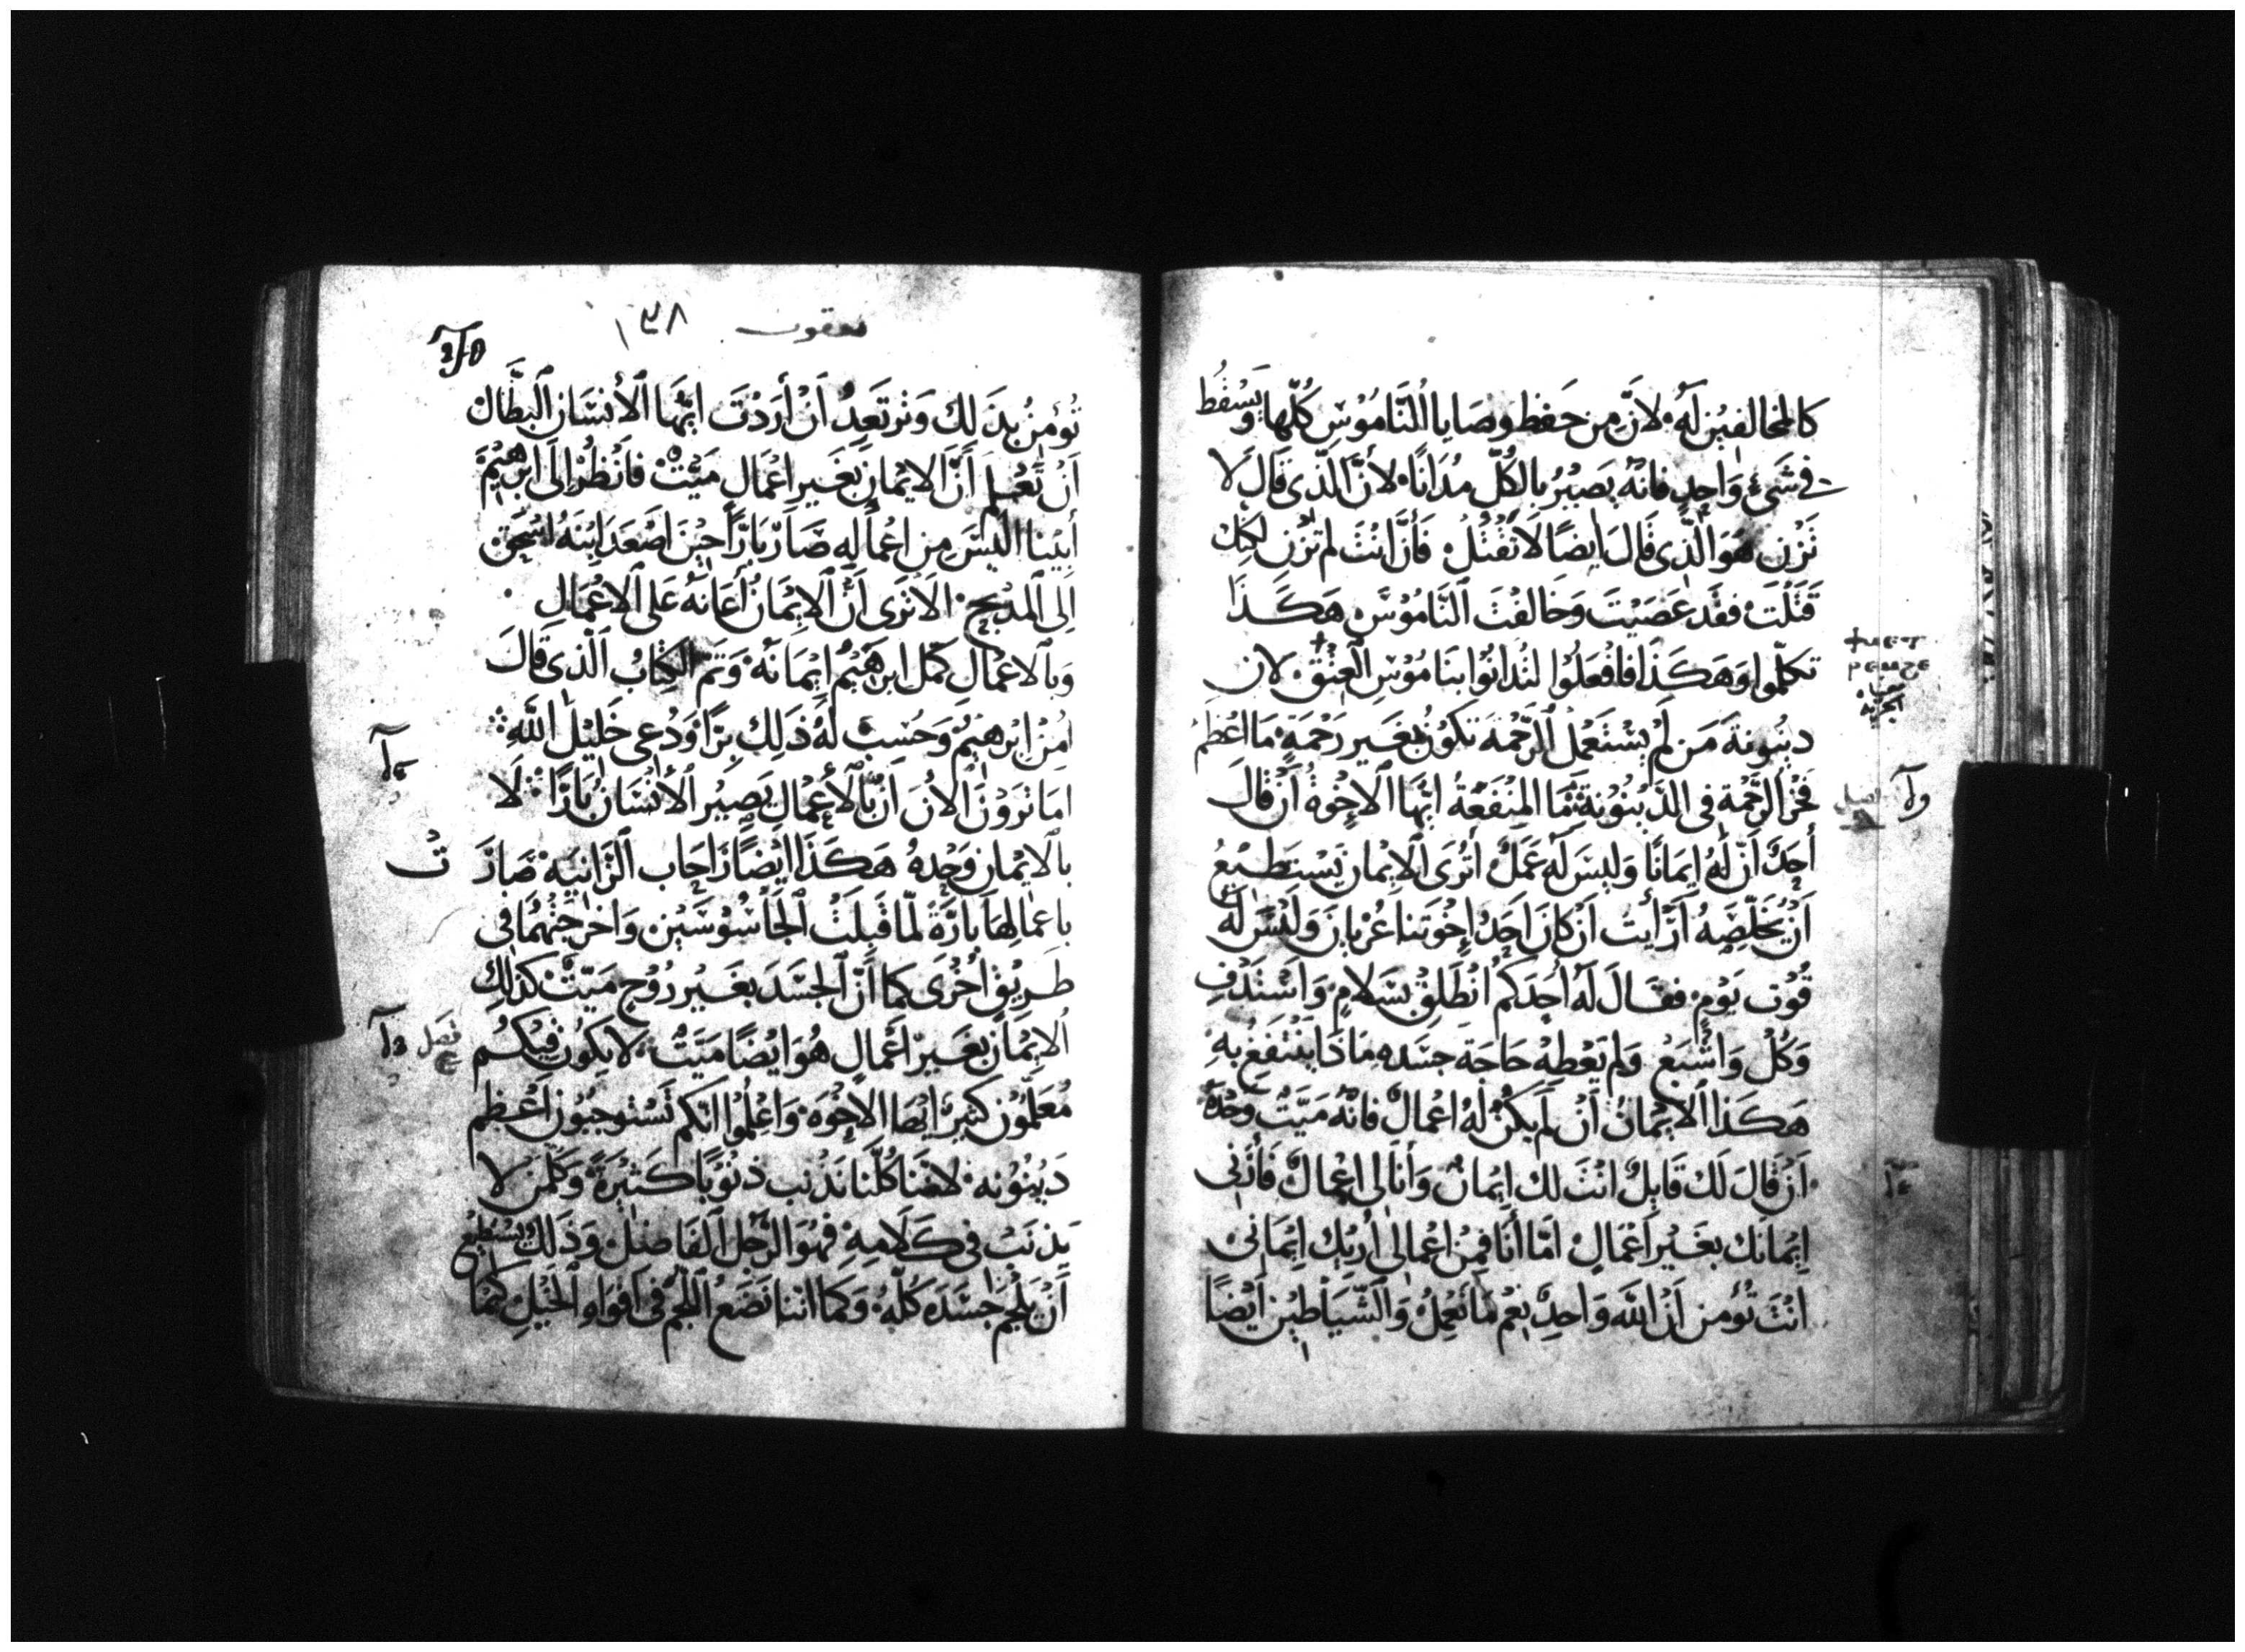 كالمخالفين له لان من حفظ وصايا الناموس كلها ويسقط
في شيء واحد فانه يصير بالكل مدانا لان الذي قال لا
تزن هو الذي قال ايضا لا تقتل فان انت لم تزن لكنك
قتلت فقد عصيت وخالفت الناموس هكذا
تكلموا وهكذا فافعلوا لتدانوا بناموس العتق لان
دينونة من لم يستعمل الرحمة تكون بغير رحمة ما اعظم
فخر الرحمة في الدينونة ما المنفعة ايها الاخوة ان قال
أحد ان له ايمانا وليس له عمل أترى الايمان يستطيع
ان يخلصه أرأيت ان كان احد إخوتنا عريان وليس له
قوت يوم فقال له أحدكم انطلق بسلام واستدف
وكل واشبع ولم يعطه حاجة جسده ماذا ينتفع به
هكذا الايمان أن لم يكن له اعمال فانه ميت وحده
ان قال لك قايل انت لك إيمان وأنا لى اعمال فأرنى
إيمانك بغير أعمال امّا أنا فمن اعمالى أريك ايمانى
انت تؤمن ان الله واحد نعم ما تعمل والشياطين أيضا
يعقوب ١٣٨
تؤمن بذلك وترتعد أن أردت ايها الانسان البطال
أن تعلم أن الايمان بغير اعمال ميت فانظر الى ابرهيم
أبينا اليس من اعماله صار بارا حين اصعد ابنه اسحق
الى المذبح الا ترى أن الايمان أعانه على الاعمال
وبالاعمال كمل ابرهيم إيمانه وتم الكتاب الذي قال
امن ابرهيم وحسب له ذلك برا ودعى خليل الله
اما ترون الان ان بالأعمال يصير الأنسان بارا لا
بالايمان وحده هكذا ايضا راحاب الزانية صارت
باعمالها بارة لما قبلت الجاسوسين واخرجتهما في
طريق أخرى كما أن الجسد بغير روح ميت كذلك
الايمان بغير أعمال هو ايضا ميت لا يكون فيكم
فصل
معلمون كثير ايها الاخوه واعلموا انكم تستوجبون اعظم
دينونه لاننا كلنا نذنب ذنوبا كثيرة وكلمن لا
يذنب في كلامه فهو الرجل الفاضل وذلك يستطيع
أن يلجم جسده كله وكما اننا نضع اللجم في افواه الخيل كيما